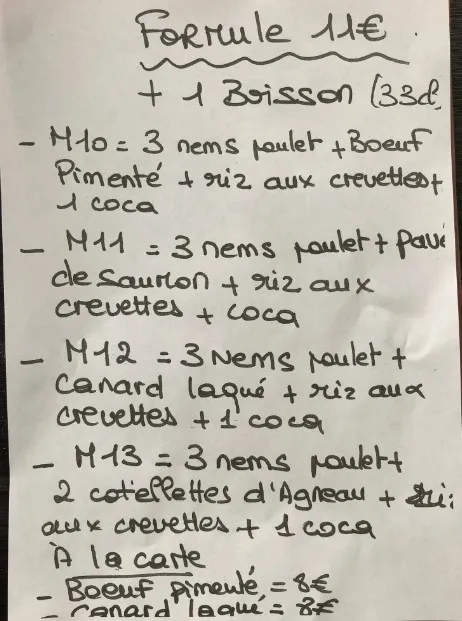 Formule 11€
+ 1 Boisson (33cl
- M10 = 3 nems poulet + Boeuf
Pimenté + riz aux crevettes +
1 coca
- M11 = 3 nems poulet + Pavé
de Saumon + riz aux
crevettes + coca
- M12 = 3 Nems poulet +
canard laqué + riz aux
crevettes + 1 coca
- M13 = 3 nems poulet +
2 cotellettes d'Agneau + riz
aux crevettes + 1 coca
À la carte
- Boeuf pimenté = 8€
- canard laqué = 8€